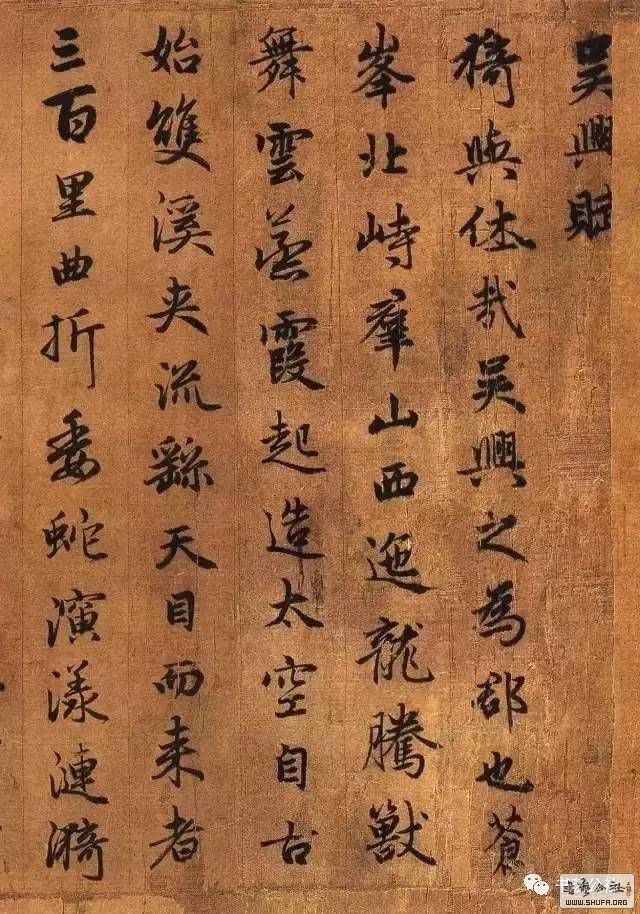 吳興賦
猗與休哉吳興之為郡也蒼
峯北峙羣山西迤龍騰獸
舞雲蒸霞起造太空自古
始雙溪夾流繇天目而来者
三百里曲折委蛇演漾漣漪
WWW.SHUFA.ORG